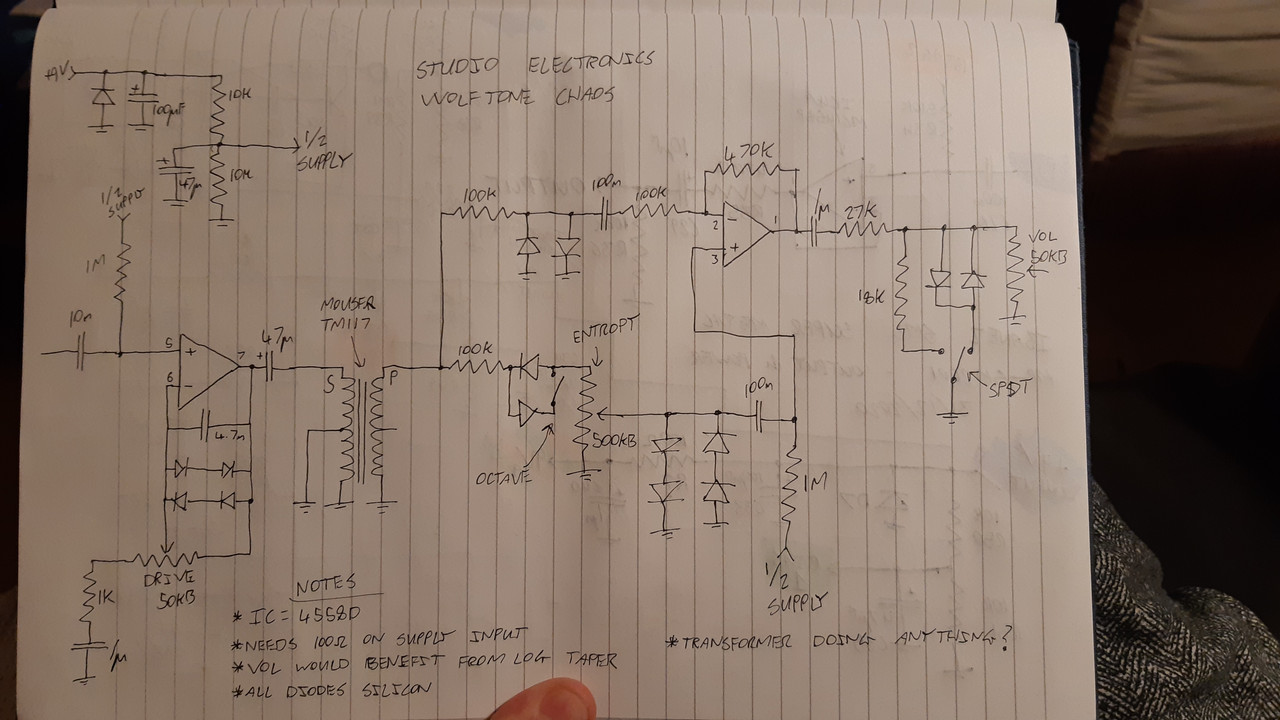 STUDIO ELECTRONICS
WOLFTONE CHAOS
+9V
100µF
10K
1/2
SUPPLY
47µ
10K
1/2
SUPPLY
1M
10n
5
+
6
-
7
+
47µ
4.7n
DRIVE
50KB
1K
1µ
MOUSER
TM117
S
P
100K
100n
100K
470K
2
-
3
+
1
1µ
27K
18K
VOL
50KB
SPDT
100K
ENTROPY
500KB
OCTAVE
100n
1M
1/2
SUPPLY
NOTES
* IC = 4558D
* NEEDS 100Ω ON SUPPLY INPUT
* VOL WOULD BENEFIT FROM LOG TAPER
* ALL DIODES SILICON
* TRANSFORMER DOING ANYTHING?